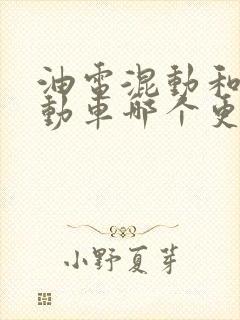 油電混動和
動車哪个更
小野夏芽